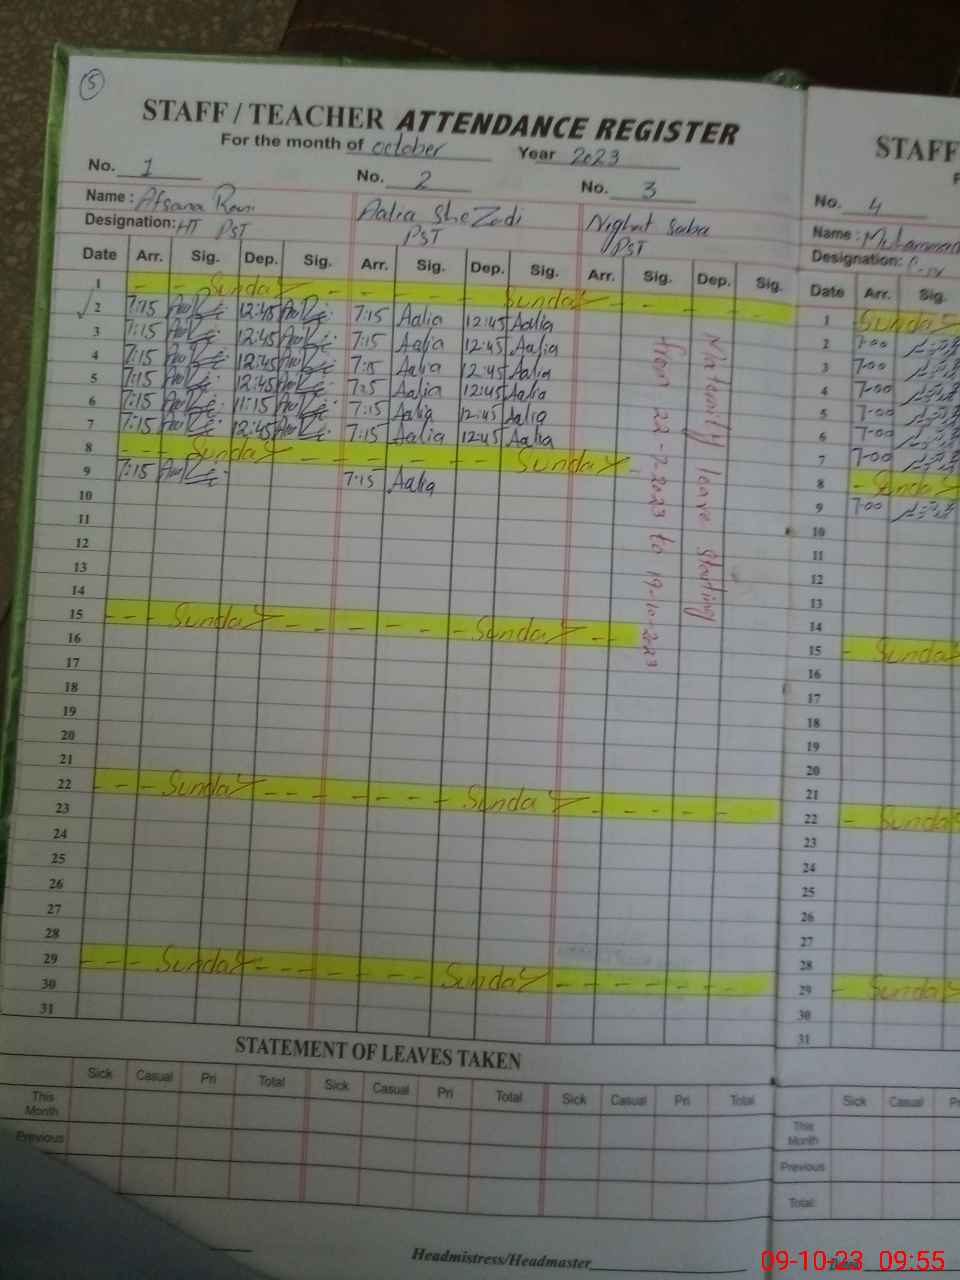 5
STAFF / TEACHER ATTENDANCE REGISTER
For the month of october Year 2023
No. 1 No. 2 No. 3
Name : Afsana Aalia SheZadi Nighat Saba
Designation: HT PST PST PST
Date Arr. Sig. Dep. Sig. Arr. Sig. Dep. Sig. Arr. Sig. Dep. Sig.
1 - - Sunday - - - - Sunday - - - -
2 7:15 12:45 7:15 Aalia 12:45 Aalia
3 7:15 12:45 7:15 Aalia 12:45 Aalia
4 7:15 12:45 7:15 Aalia 12:45 Aalia
5 7:15 12:45 Aalia 12:45 Aalia
6 7:15 11:15 7:15 Aalia 12:45 Aalia
7 7:15 12:45 7:15 Aalia 12:45 Aalia
8 - - Sunday - - - - - - Sunday -
9 7:15 7:15 Aalia
10
11
12
13
14
15 - - - Sunday - - - - - - Sunday - -
16
17
18
19
20
21
22 - - - Sunday - - - - - - - Sunday - - - - - -
23
24
25
26
27
28
29 - - - Sunday - - - - - - - Sunday - - - - - - -
30
31
Maternity leave starting
from 22-7-2023 to 19-10-2023
STATEMENT OF LEAVES TAKEN
Sick Casual Pri Total Sick Casual Pri Total Sick Casual Pri Total
This Month
Previous
Headmistress/Headmaster
STAFF
No. 4
Name : Muhammad
Designation:
Date Arr. Sig.
1 Sunday
2 7-00
3 7-00
4 7-00
5 7-00
6 7-00
7 7-00
8 - Sunday
9 7-00
10
11
12
13
14
15 - Sunday
16
17
18
19
20
21
22 - Sunday
23
24
25
26
27
28
29 - Sunday
30
31
Sick Casual
This Month
Previous
Total:
09-10-23 09:55